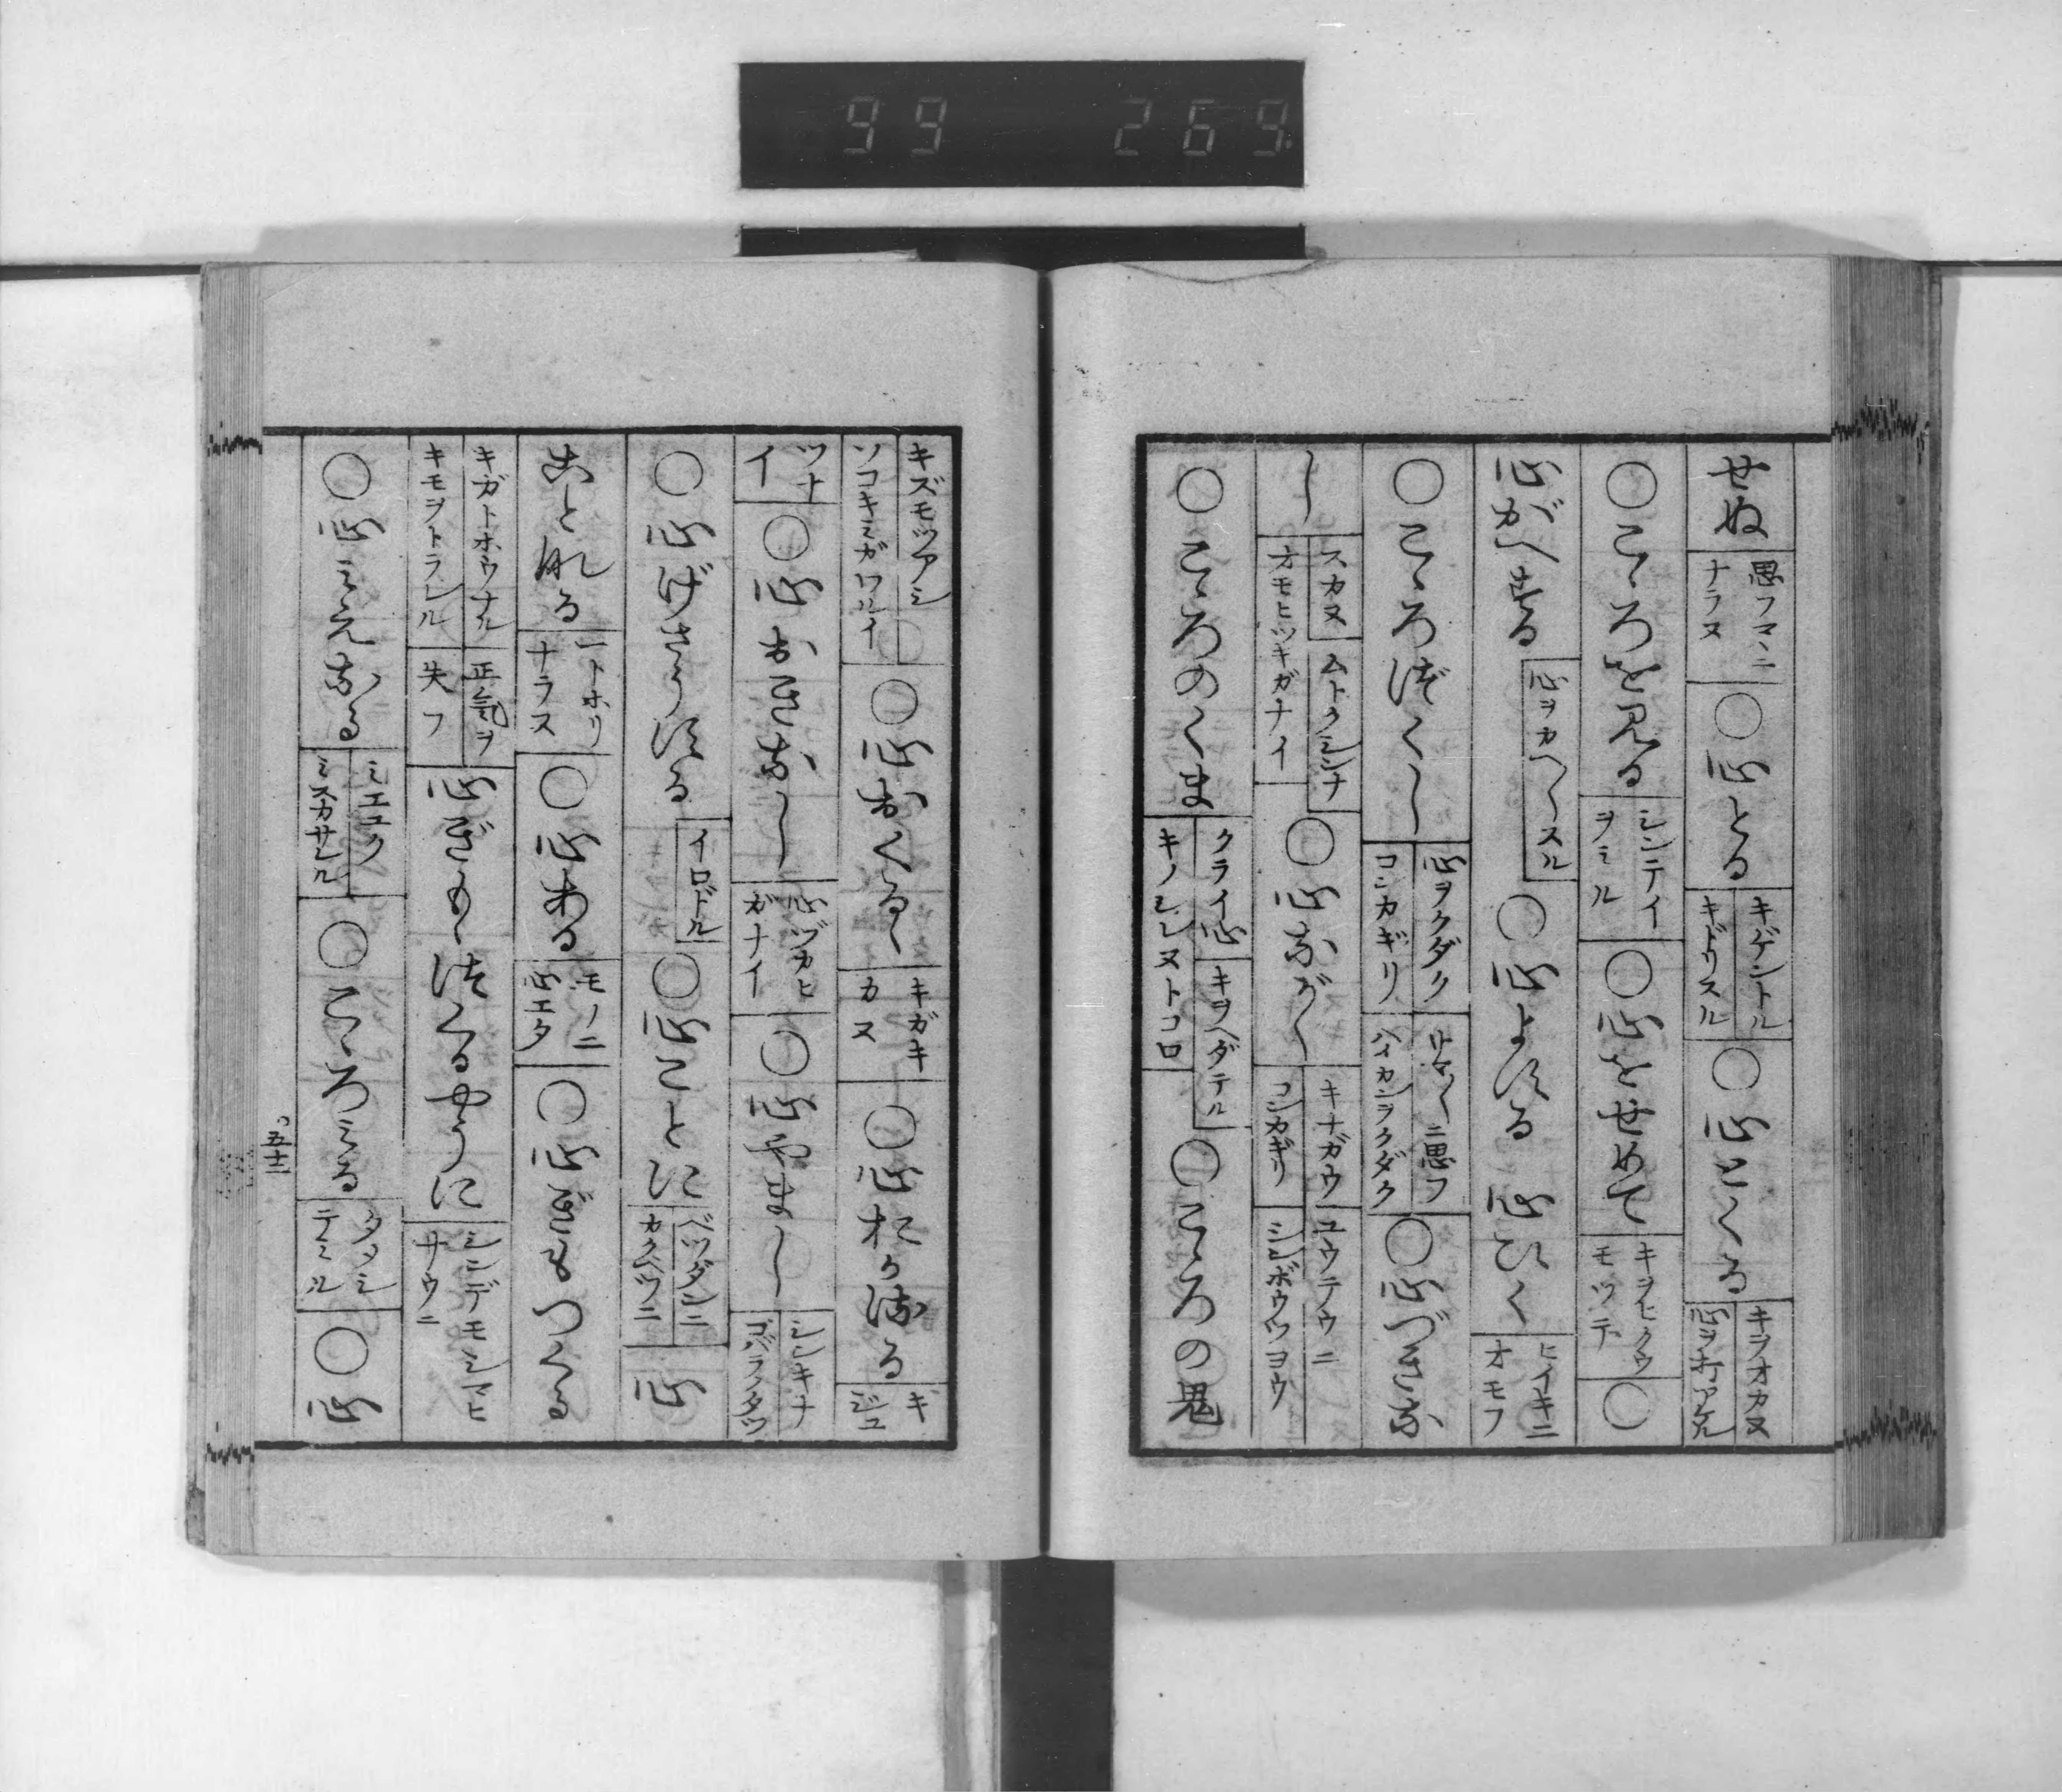 99 269
せぬ 思フマヽニナラヌ ○心とる キゲントル キドリスル ○心とくる キヲオカヌ 心ヲ打アケル
○こゝろを見る シンテイヲミル ○心をせめて キヲヒクウモツテ ○
心がへせる 心ヲカヘ〳〵スル ○心よする 心ひく ヒイキニオモフ
○こゝろづくし 心ヲクダク コンカギリ サマ〴〵ニ思フ ハイカンヲクダク ○心づきな
し スカヌ ムトクシンナ オモヒツキガナイ ○心ながく キナガウ コンカギリ ユウテウニ シンボウツヨウ
○こゝろのくま クライ心 キヲヘダテル キノシレヌトコロ ○こゝろの鬼
キズモツアシ ソコキミガワルイ ○心おくる キガキカヌ ○心おかるる キジュ
ツナイ ○心おきなし 心ヅカヒガナイ ○心やまし シンキナ ゴバラノタツ
○心げさうする イロドル ○心ことに ベツダンニ カクベツニ 心
ことなる 一トホリナラス ○心ある モノニ心エタ ○心ぎもつくる
キガトホウナル キモヲトラレル 正氣ヲ失フ 心ぎもゝつくるやうに シンデモシマヒサウニ
○心みえなる ミエユク ミスカサレル ○こゝろみる タメシテミル ○心
五十二